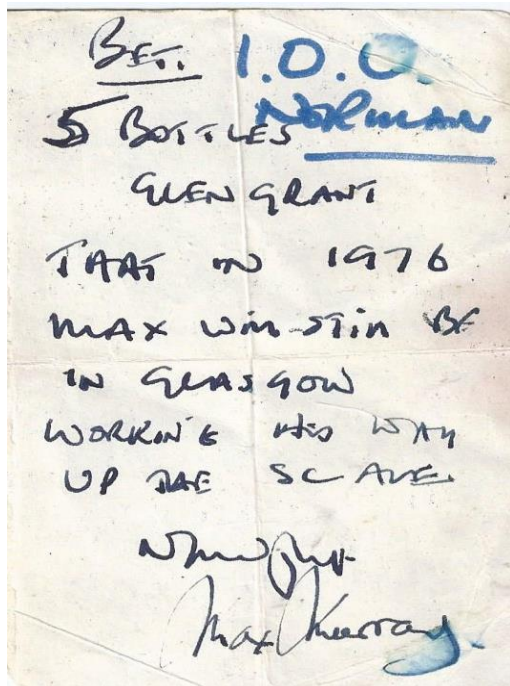 BET. I.O.U.
NORMAN
5 BOTTLES
GLEN GRANT
THAT IN 1976
MAX WILL STILL BE
IN GLASGOW
WORKING HIS WAY
UP THE SCALE.
Max Murray